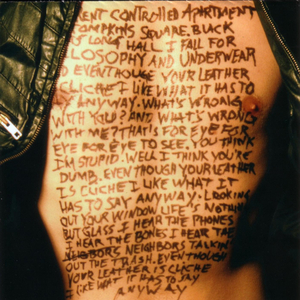 RENT CONTROLLED APARTMENT
TOMPKINS SQUARE, BUCK
LONG HALL I FALL FOR
LOSOPHY AND UNDERWEAR
D EVENTHOUGH YOUR LEATHER
CLICHE I LIKE WHAT IT HAS TO
SAY ANYWAY. WHAT'S WRONG
WITH YOU? AND WHAT'S WRONG
WITH ME? THAT'S FOR EYE FOR
EYE FOR EYE TO SEE. YOU THINK
I'M STUPID. WELL I THINK YOU'RE
DUMB. EVEN THOUGH YOUR LEATHER
IS CLICHE I LIKE WHAT IT
HAS TO SAY ANYWAY. LOOKING
OUT YOUR WINDOW LIFE'S NOTHING
BUT GLASS I HEAR THE PHONES
I HEAR THE BONES I HEAR THE
NEIGHBORS TALKIN'
OUT THE TRASH. EVEN THOUGH
YOUR LEATHER IS CLICHE
I LIKE WHAT IT HAS TO SAY
ANYWAY